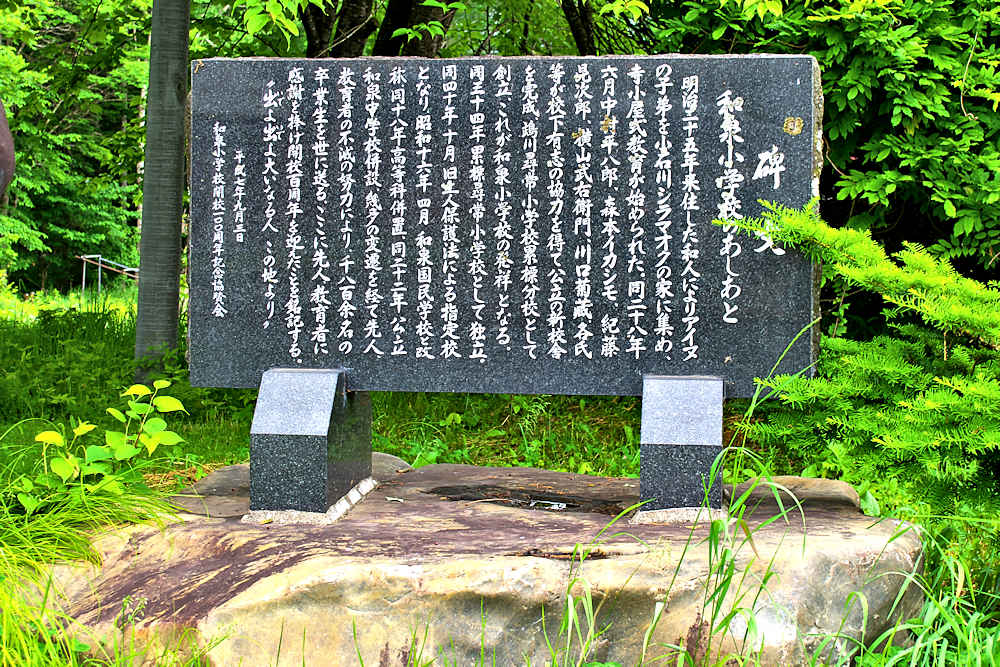 碑文
和泉小学校のあしあと
明治二十五年来住した和人によりアイヌ
の子弟を小石川シラマオクの家に集め、
寺小屋式教育が始められた。同二十八年
六月中村平八郎、森本イカシモ、紀藤
晃次郎、横山武右衛門、川口菊蔵、各氏
等が校下有志の協力を得て公立の新校舎
を完成、鵡川尋常小学校累標分校として
創立、これが和泉小学校の発祥となる。
同三十四年、累標尋常小学校として独立。
同四十年十月旧土人保護法による指定校
となり、昭和十六年四月和泉国民学校と改
称、同十八年高等科併置、同二十二年、公立
和泉中学校併設、幾多の変遷を経て先人
教育者の不滅の努力により、千八百余名の
卒業生を世に送る。ここに先人、教育者に
感謝を捧げ開校百周年を迎えたことを銘記する。
〃出よ出よ大いなる人、この地より〃
平成七年九月三日
和泉小学校開校一〇〇周年記念協賛会